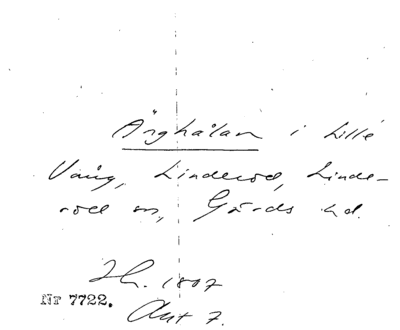 Änghålan i Lille
Vång, Linderöd, Linde-
röd sn, Gärds hd.
Lh. 1807
Akt 7.
Nr 7722.